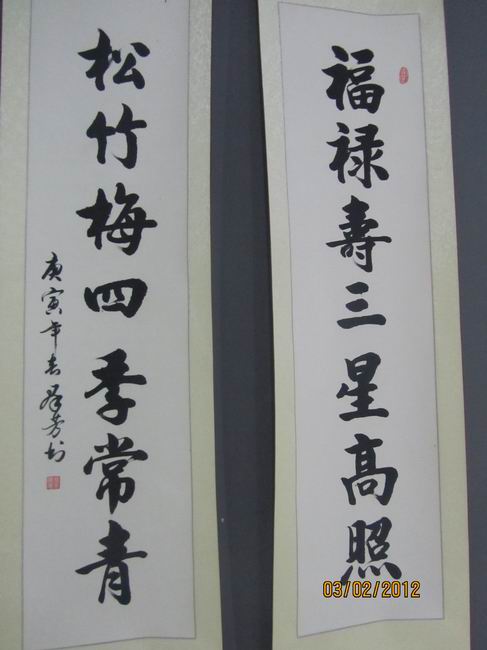 福禄壽三星高照
松竹梅四季常青
庚寅年春群芳书
03/02/2012